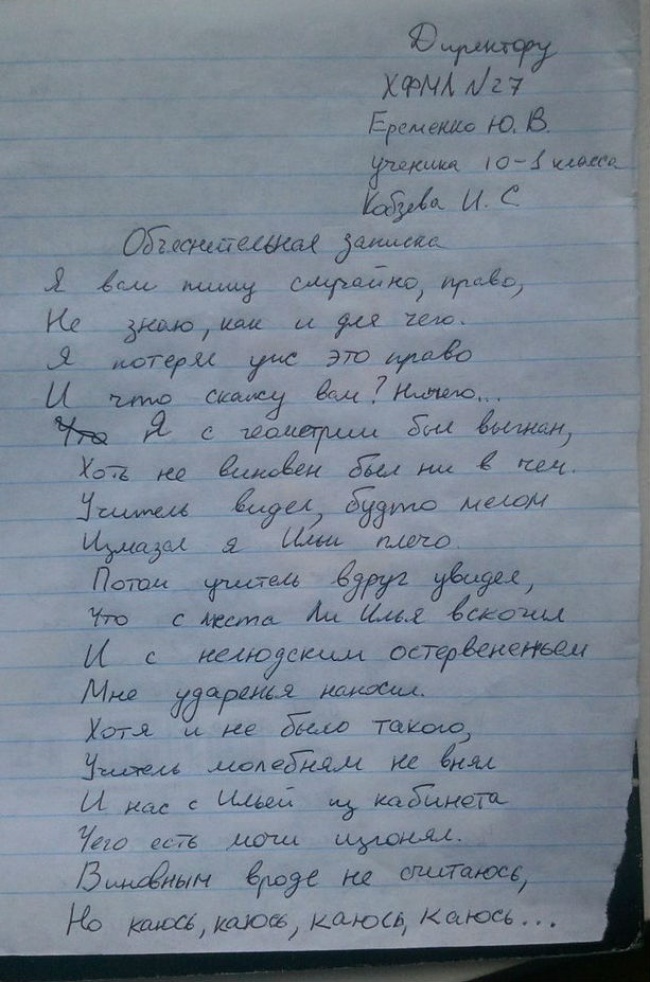 Директору
ХФМЛ №27
Еременко Ю. В.
ученика 10-1 класса
Кобзева И. С.
Объеснительная записка
Я вам пишу случайно, право,
Не знаю, как и для чего.
Я потерял уже это право
И что скажу вам? Ничего...
Что Я с геометрии был выгнан,
Хоть не виновен был ни в чем.
Учитель видел, будто мелом
Измазал я Ильи плечо
Потом учитель вдруг увидел,
Что с места Ли Илья вскочил
И с нелюдским остервененьем
Мне ударенья наносил.
Хотя и не было такого,
Учитель молебням не внял
И нас с Ильей из кабинета
Чего есть мочи изгонял.
Виновным вроде не считаюсь,
Но каюсь, каюсь, каюсь, каюсь...